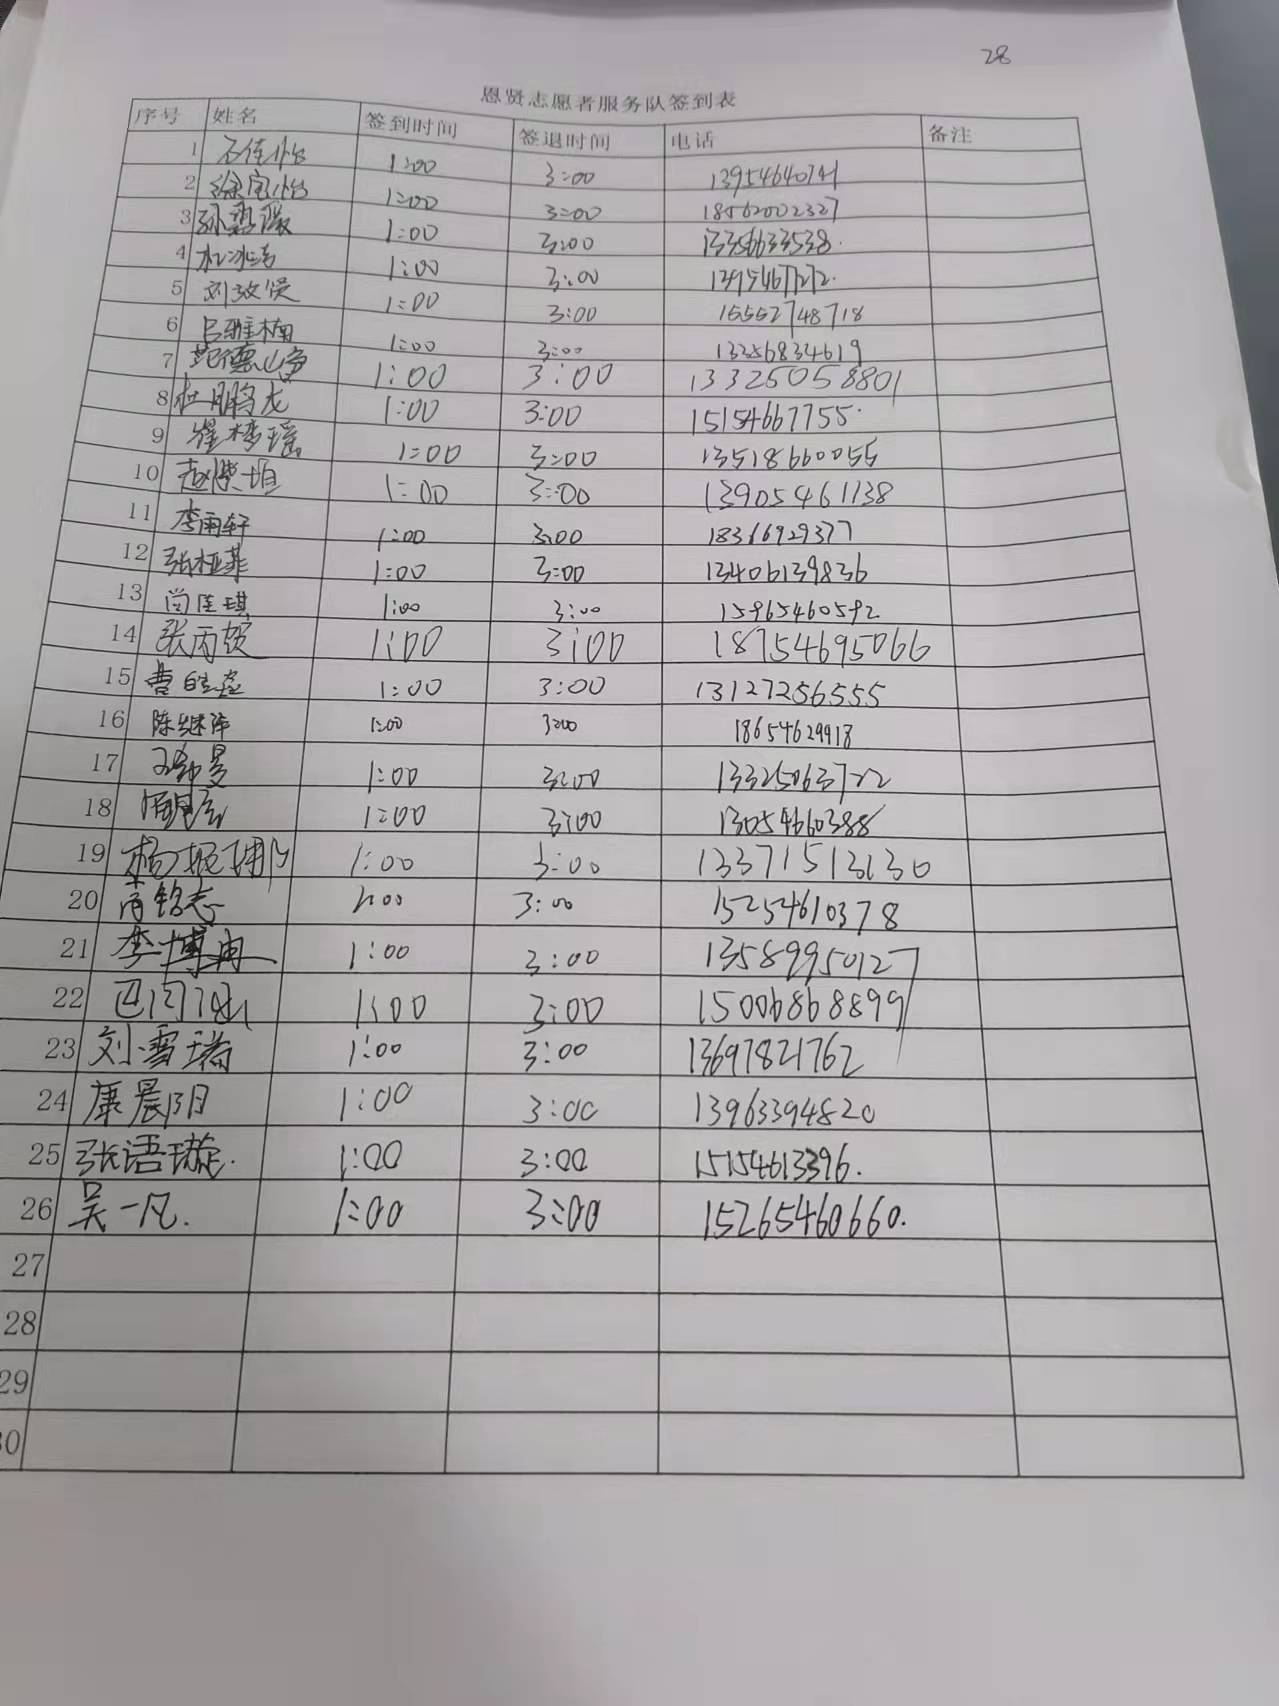 28
恩贤志愿者服务队签到表
序号 姓名 签到时间 签退时间 电话 备注
1 石佳怡 1:00 3:00 13954640741
2 徐宝怡 1:00 3:00 18562002327
3 孙 1:00 3:00 13356633538.
4 杜冰洁 1:00 3:00
5 刘 1:00 3:00 15552748718
6 吕雅楠 1:00 3:00 13256834619
7 范德 1:00 3:00 13325058801
8 杜鹏龙 1:00 3:00 15154667755.
9 崔梦瑶 1:00 3:00 13518660055
10 赵 1:00 3:00 13905461138
11 李雨轩 1:00 3:00 18366929377
12 张桠菲 1:00 3:00 13406139836
13 尚佳琪 1:00 3:00 15965460592
14 张丙 1:00 3:00 18754695066
15 曹 1:00 3:00 13127256555
16 陈继 1:00 3:00 18654629918
17 1:00 3:00 13325063722
18 1:00 3:00 13054660388
19 杨 1:00 3:00 13371513130
20 铭志 1:00 3:00 15254610378
21 李博冉 1:00 3:00 13589950127
22 巴闫 1:00 3:00 15006868899
23 刘雪瑞 1:00 3:00 13697821762
24 康晨阳 1:00 3:00 13963394820
25 张语璇. 1:00 3:00 15154613396.
26 吴一凡. 1:00 3:00 15265460660.
27
28
29
30